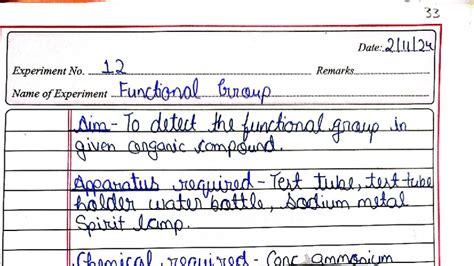 33
Date: 2/11/24
Experiment No. 12 Remarks
Name of Experiment Functional Group
Aim - To detect the functional group in
given organic compound.
Apparatus required - Test tube, test tube
holder water bottle, sodium metal
Spirit lamp.
Chemical required - Conc ammonium